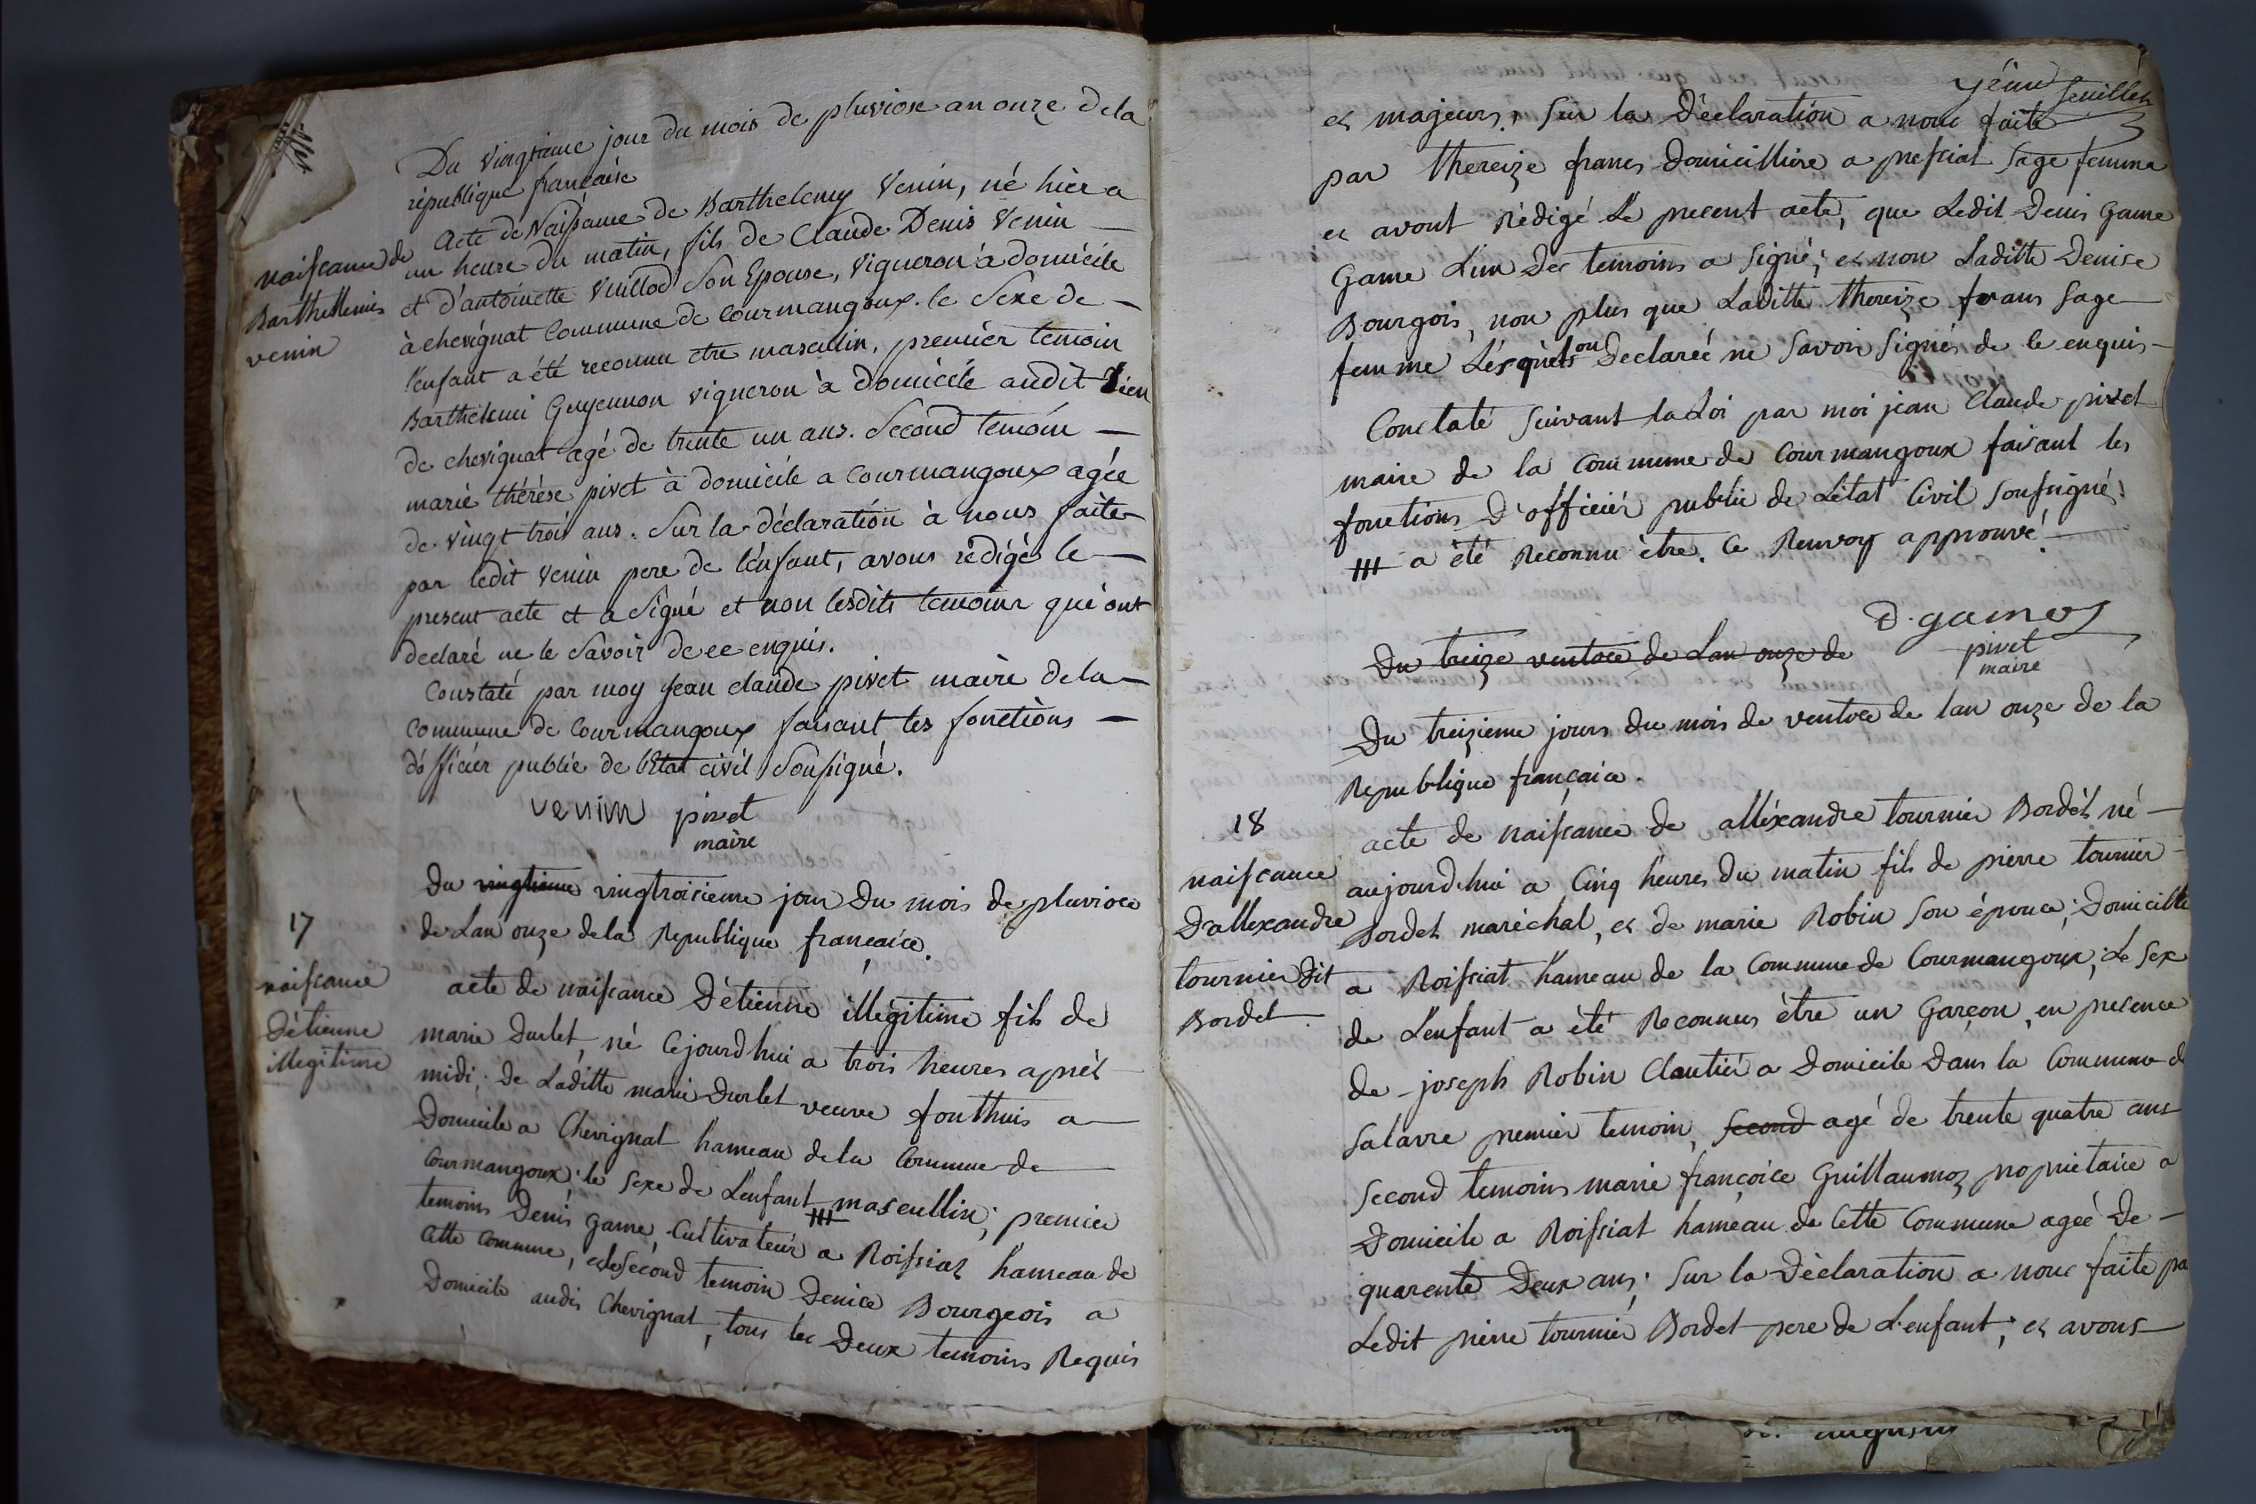 Du vingtieme jour du mois de pluviose an onze dela
république française
naissance de
Barthellemis
venin
Acte de Naissance de Barthelemy Venin, né hier a
un heure du matin, fils de Claude Denis Venin
et d'antoinette Vuillod Son Epouse, vigneron à domicile
à chevignat Commune de Courmangoux. le Sexe de
l'enfant a été reconnu etre masculin, premier temoin
Barthelemi Guyennon vigneron à domicile audit Lieu
de chevignat agé de trente un ans. Second temoin
marie thérèse pivet à domicile a Courmangoux agée
de vingt trois ans. Sur la déclaration à nous faite
par ledit Venin pere de l'enfant, avons rédigé le
present acte et a Signé et non lesdits temoins qui ont
declaré ne le Savoir de ce enquis.
Constaté par moy jean claude pivet maire dela
Commune de Courmangoux faisant les fonctions
d'officier public de l'Etat civil Soussigné.
venin pivet
maire
17
naissance
D'etienne
illegitime
Du vingtieme vingtroisieme jour Du mois de pluvioce
de Lan onze dela Republique françaice.
acte de naissance D'étienne illégitime fils de
marie Durlet, né Cejourdhui a trois heures après
midi; de Laditte marie Durlet veuve fonthuis a
Domicile a Chevignat hameau dela Commune de
Courmangoux; le sexe de L'enfant masculin; premier
temoins Denis Game, Cultivateur a Roissiat hameau de
Cette Commune, et le second temoin Denice Bourgeois a
Domicile audit Chevignat, tous les Deux temoins Requis
9éme feuillet
et majeurs; Sur la Déclaration a nous faite
par thereize frans Domicillière a pressiat Sage femme
et avont Rédigé Le present acte, que Ledit Denis Game
Game L'un Des temoins a Signé; et non Laditte Denise
Bourgois, non plus que Laditte thereize frans Sage
femme Lésquels on Declareé ne Savoir Signés de le enquis
Constaté Suivant la Loi par moi jean Claude pivet
maire de la Commune de Courmangoux faisant les
fonctions D'officier public de L'état Civil Soussigné.
a été Reconnu être. Ce Renvoy approuvé
D. game
pivet
maire
Du treize ventoce de Lan onze de
Du treizieme jours du mois de ventoce de lan onze de la
Republique françaice.
18
naissance
D'allexandre
tournier Dit
Bordet
acte de naissance de alléxandre tournier Bordet né
aujourd'hui a Cinq heures du matin fils de pierre tournier
Bordet maréchal, et de marie Robin Son épouce; Domicillé
a Roissiat hameau de la Commune de Courmangoux; Le Sex
de L'enfant a été Reconnus être un Garçon, en presence
de joseph Robin Cloutié a Domicile Dans la Commune d
Salavre premier temoin, second agé de trente quatre ans
Second temoins marie françoice Guillaumoz propriétaire a
Domicile a Roissiat hameau de Cette Commune ageé De
quarente Deux ans; Sur la Déclaration a nous faite pa
Ledit pierre tournier Bordet pere de L'enfant; et avons